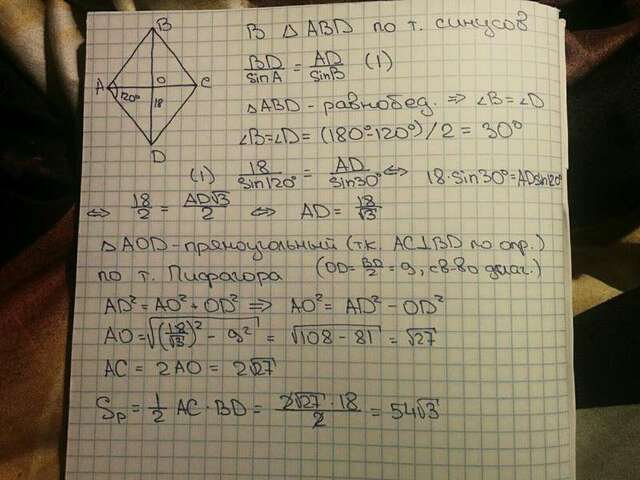 B
A
O
C
120°
18
D
В △ABD по т. синусов
BD/sinA = AD/sinB (1)
△ABD - равнобед. ⇒ ∠B=∠D
∠B=∠D = (180°-120°)/2 = 30°
(1) 18/sin120° = AD/sin30° ⇔ 18·sin30°=ADsin120°
⇔ 18/2 = AD√3/2 ⇔ AD = 18/√3
△AOD-прямоугольный (т.к. AC⊥BD по опр.)
по т. Пифагора (OD=BD/2=9, св-во диаг.)
AD²=AO²+OD² ⇒ AO²=AD²-OD²
AO=√((18/√3)²-9²) = √(108-81) = √27
AC = 2AO = 2√27
Sр = 1/2 AC·BD = 2√27·18/2 = 54√3